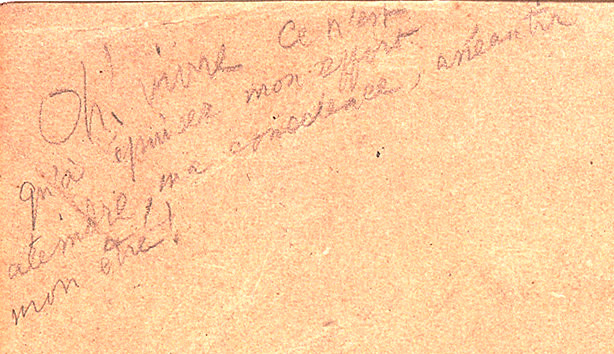 Oh! vivre Ce n'est
qu'à épuiser mon effort
ma conscience, anéantir
mon être!